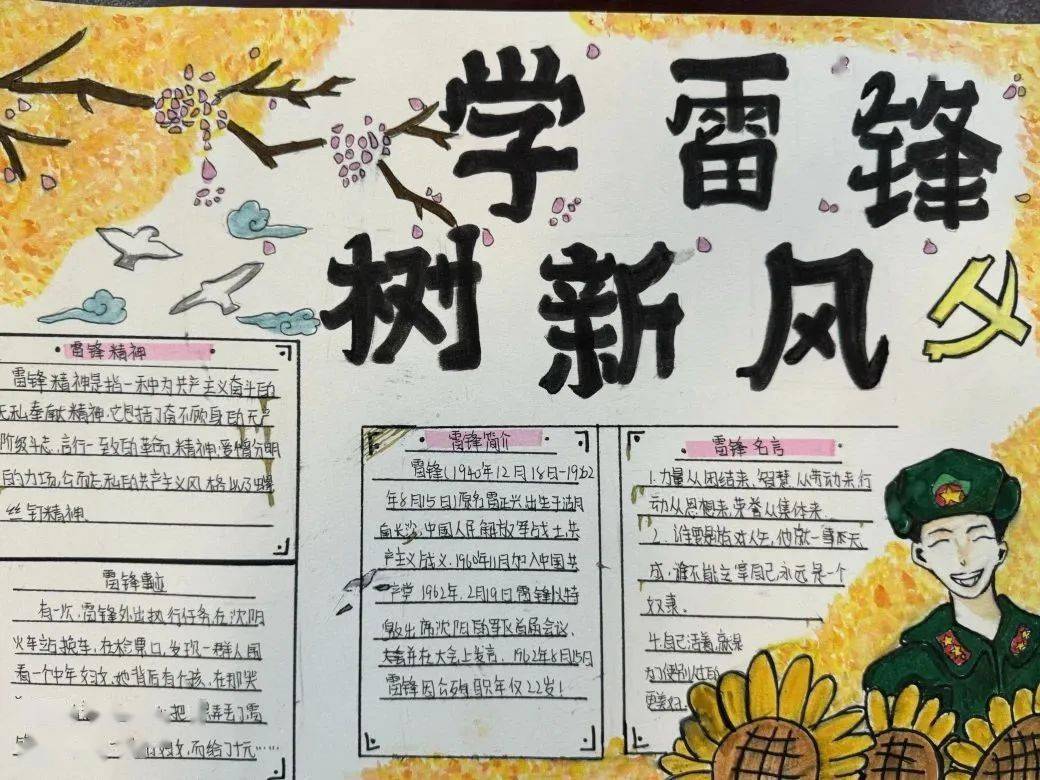 学雷锋
树新风
雷锋精神
雷锋精神是指一种为共产主义奋斗的
无私奉献精神.它包括了奋不顾身的无产
阶级斗志,言行一致的革命精神,爱憎分明
的力场,公而无私的共产主义风格以及螺
丝钉精神.
雷锋事迹
有一次,雷锋外出执行任务在沈阳
火车站换车,在检票口,发现一群人围
看一个中年妇女,她背后有个孩,在那哭
把 弄丢了雷
而给了十元……
雷锋简介
雷锋(1940年12月18日-1962
年8月15日)原名雷正兴出生于湖
南长沙,中国人民解放军战士共
产主义战义.1960年11月加入中国共
产党 1962年.2月19日雷锋以特
邀出席沈阳部军区首届会议.
并在大会上发言.1962年8月15日
雷锋因公 职年仅22岁!
雷锋名言
1.力量从团结来,智慧从劳动来,行
动从思想来,荣誉从集体来.
2.谁要是游戏人生,他就一事无
成,谁不能主宰自己,永远是一个
奴隶.
自己活着,就是
为了使别人过的
更美好.